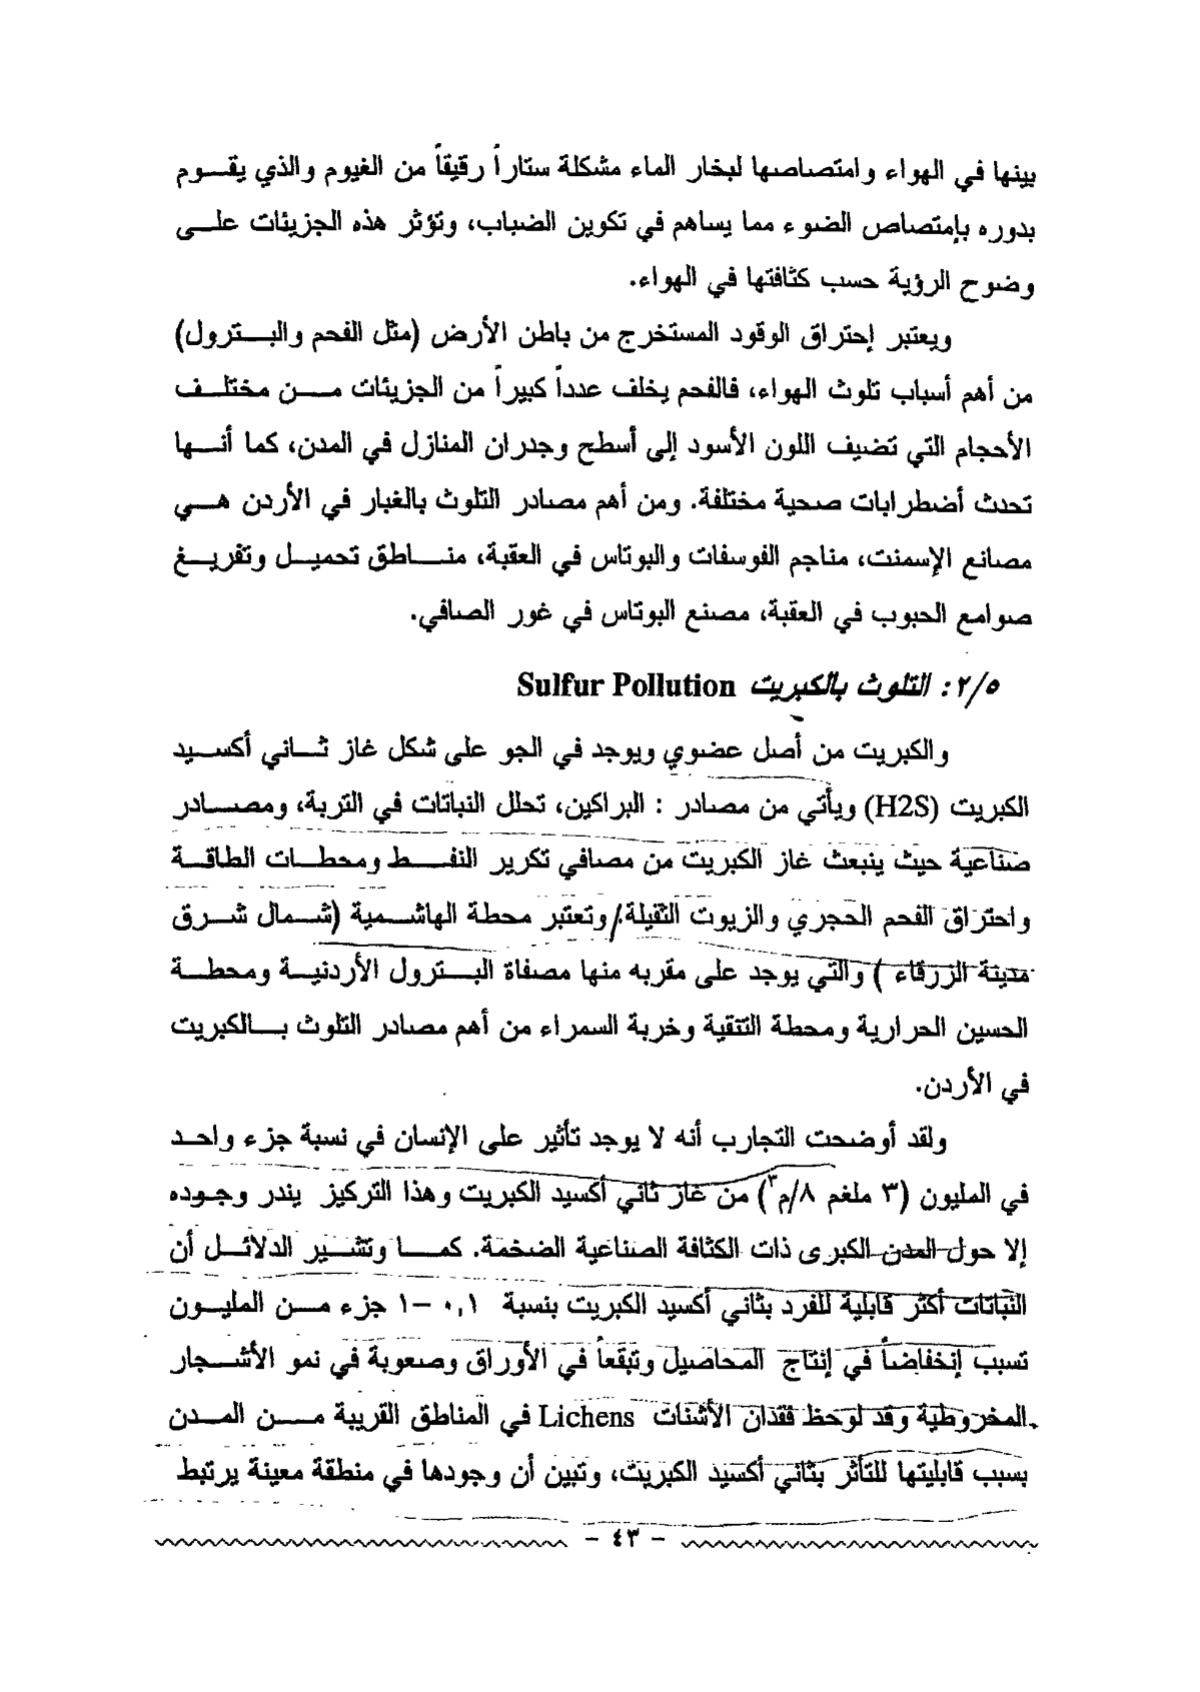 بينها في الهواء وامتصاصها لبخار الماء مشكلة ستاراً رقيقاً من الغيوم والذي يقوم
بدوره بإمتصاص الضوء مما يساهم في تكوين الضباب، وتؤثر هذه الجزيئات على
وضوح الرؤية حسب كثافتها في الهواء.
ويعتبر إحتراق الوقود المستخرج من باطن الأرض (مثل الفحم والبترول)
من أهم أسباب تلوث الهواء، فالفحم يخلف عدداً كبيراً من الجزيئات من مختلف
الأحجام التي تضيف اللون الأسود إلى أسطح وجدران المنازل في المدن، كما أنها
تحدث أضطرابات صحية مختلفة. ومن أهم مصادر التلوث بالغبار في الأردن هي
مصانع الإسمنت، مناجم الفوسفات والبوتاس في العقبة، مناطق تحميل وتفريغ
صوامع الحبوب في العقبة، مصنع البوتاس في غور الصافي.
٢/٥: التلوث بالكبريت Sulfur Pollution
والكبريت من أصل عضوي ويوجد في الجو على شكل غاز ثاني أكسيد
الكبريت (H2S) ويأتي من مصادر : البراكين، تحلل النباتات في التربة، ومصادر
صناعية حيث ينبعث غاز الكبريت من مصافي تكرير النفط ومحطات الطاقة
واحتراق الفحم الحجري والزيوت الثقيلة. وتعتبر محطة الهاشمية (شمال شرق
مدينة الزرقاء ) والتي يوجد على مقربه منها مصفاة البترول الأردنية ومحطة
الحسين الحرارية ومحطة التنقية وخربة السمراء من أهم مصادر التلوث بالكبريت
في الأردن.
ولقد أوضحت التجارب أنه لا يوجد تأثير على الإنسان في نسبة جزء واحد
في المليون (٣ ملغم ٨/م٣) من غاز ثاني أكسيد الكبريت وهذا التركيز يندر وجوده
إلا حول المدن الكبرى ذات الكثافة الصناعية الضخمة. كما وتشير الدلائل أن
النباتات أكثر قابلية للفرد بثاني أكسيد الكبريت بنسبة ٠,١ –١ جزء من المليون
تسبب إنخفاضاً في إنتاج المحاصيل وتبقعاً في الأوراق وصعوبة في نمو الأشجار
المخروطية وقد لوحظ فقدان الأشنات Lichens في المناطق القريبة من المدن
بسبب قابليتها للتأثر بثاني أكسيد الكبريت، وتبين أن وجودها في منطقة معينة يرتبط
– ٤٣ –